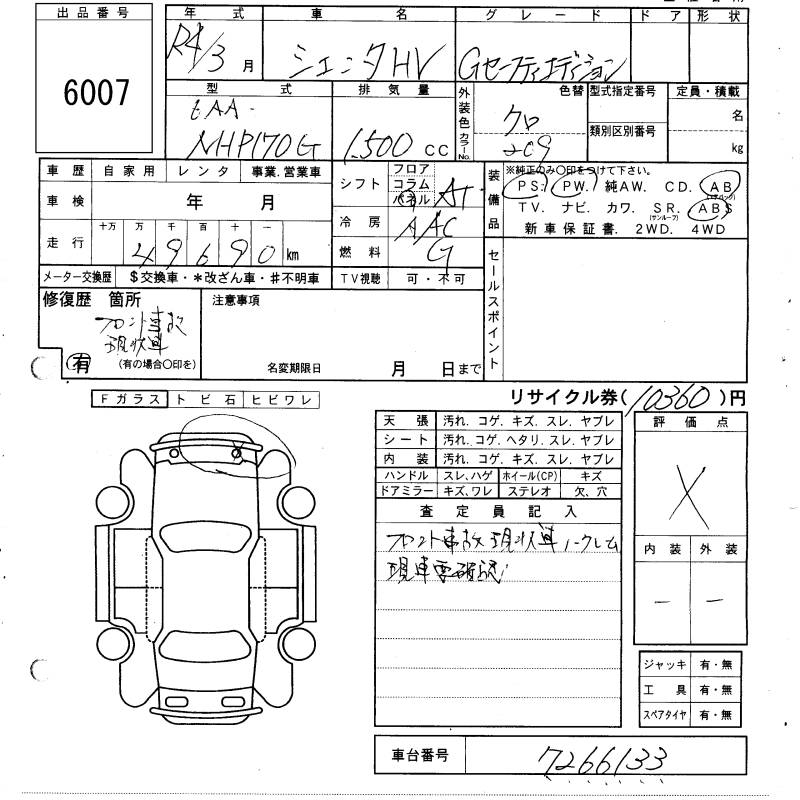 出品番号
6007
年式 車名 グレード ドア 形状
R4/3 月 シエンタHV Gセーフティエディション
型式 排気量 外装色 カラーNo. 色替 型式指定番号 定員・積載
6AA-
NHP170G 1500 CC クロ
209 類別区別番号 名
kg
車歴 自家用 レンタ 事業.営業車
車検 年 月
走行 十万 万 千 百 十 一
49690 km
メーター交換歴 $交換車・*改ざん車・#不明車
シフト フロア
コラム
パネル AT
冷房 AAC
燃料 G
TV視聴 可・不可
装備品 ※純正のみ〇印をつけて下さい。
PS. PW. 純AW. CD. AB (エアバック)
TV. ナビ. カワ. SR. (サンルーフ) ABS
新車保証書. 2WD. 4WD
修復歴 箇所
フロント事故
現状車
有 (有の場合〇印を)
注意事項
名変期限日 月 日まで
セールスポイント
リサイクル券(10360)円
Fガラス トビ石 ヒビワレ
天張 汚れ. コゲ. キズ. スレ. ヤブレ
シート 汚れ. コゲ. ヘタリ. スレ. ヤブレ
内装 汚れ. コゲ. キズ. スレ. ヤブレ
ハンドル スレ、ハゲ ホイール(CP) キズ
ドアミラー キズ、ワレ ステレオ 欠、穴
査定員記入
フロント事故現状車ノークレーム
現車要確認
評価点
X
内装 外装
— —
ジャッキ 有・無
工具 有・無
スペアタイヤ 有・無
車台番号 7266133